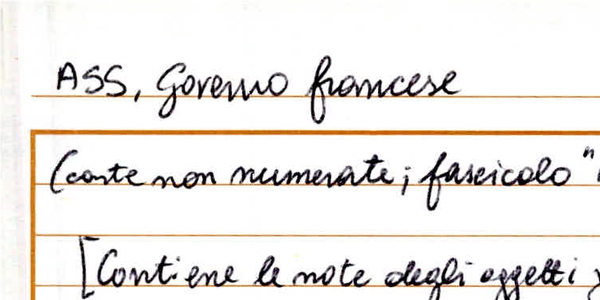 ASS, Governo francese
(carte non numerate; fascicolo "
[Contiene le note degli oggetti